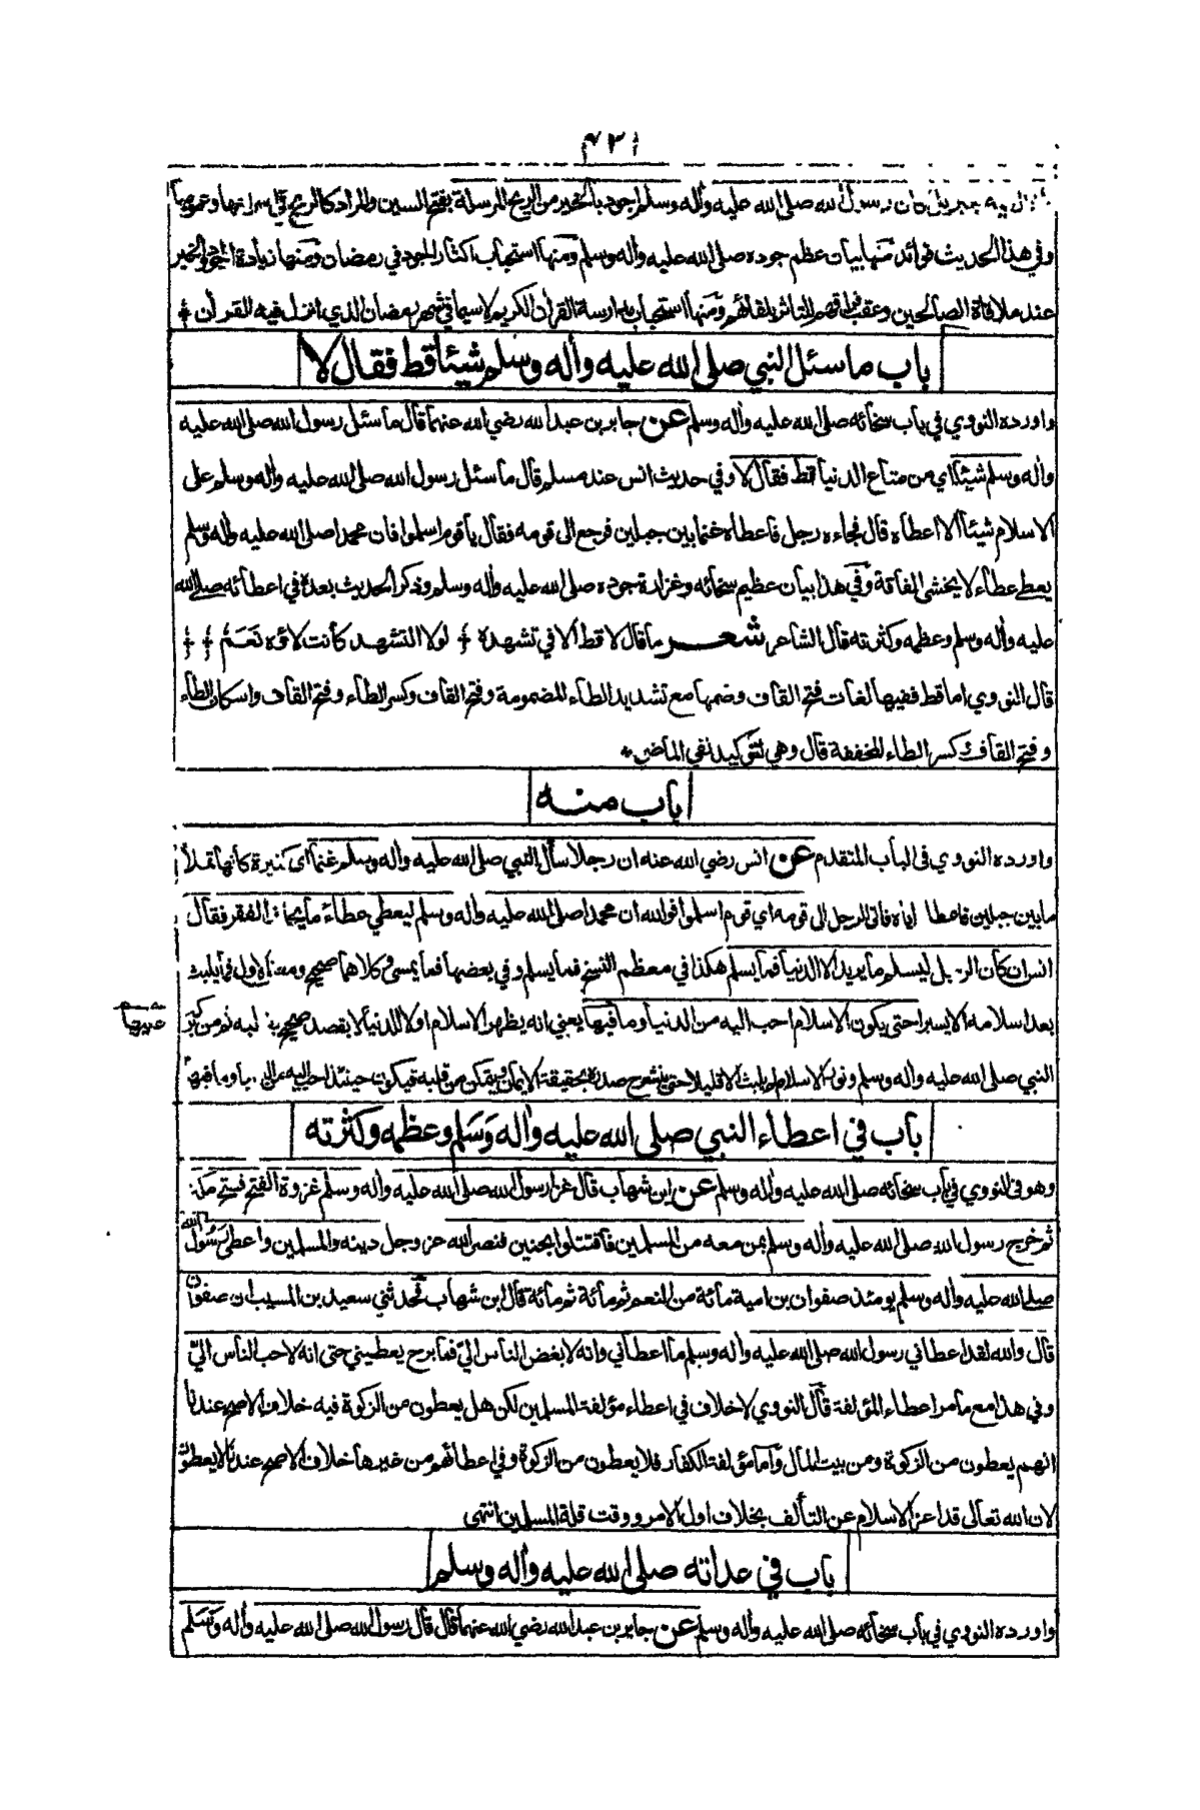 ٤٣١
جبريل كان رسول الله صلى الله عليه وأله وسلم اجود بالخير من الريح المرسلة بفتح السين والمراد كالريح في اسراعها وعمومها
وفي هذا الحديث فوائد منها بيان عظم جوده صلى الله عليه وأله وسلم ومنها استحباب اكثار الجود في رمضان ومنها زيادة الجود والخير
عند ملاقاة الصالحين وعقب فراقهم للتاثر بلقائهم ومنها استحباب مدارسة القرأن الكريم لا سيما في شهر رمضان الذي انزل فيه القرأن
باب ما سئل النبي صلى الله عليه وأله وسلم شيئا قط فقال لا
واورده النووي في باب سخائه صلى الله عليه وأله وسلم عن جابر بن عبد الله رضي الله عنهما قال ما سئل رسول الله صلى الله عليه
وأله وسلم شيئا اي من متاع الدنيا قط فقال لا وفي حديث انس عند مسلم قال ما سئل رسول الله صلى الله عليه وأله وسلم على
الاسلام شيئا الا اعطاه قال فجاءه رجل فاعطاه غنما بين جبلين فرجع الى قومه فقال يا قوم اسلموا فان محمدا صلى الله عليه وأله وسلم
يعطي عطاء لا يخشى الفاقة وفي هذا بيان عظيم سخائه وغزارة جوده صلى الله عليه وأله وسلم وذكر الحديث بعده في اعطائه صلى الله
عليه وأله وسلم وعظمه وكثرته قال الشاعر شعر ما قال لا قط الا في تشهده لولا التشهد كانت لاؤه نَعَمُ
قال النووي اما قط ففيها لغات فتح القاف وضمها مع تشديد الطاء المضمومة وفتح القاف وكسر الطاء وفتح القاف واسكان الطاء
وفتح القاف كسر الطاء المخففة قال وهي لتوكيد نفي الماضي
باب منه
واورده النووي في الباب المتقدم عن انس رضي الله عنه ان رجلا سأل النبي صلى الله عليه وأله وسلم غنما اي كثيرة كأنها تملأ
ما بين جبلين فاعطاه اياه فاتى الرجل الى قومه اي قوم اسلموا فوالله ان محمدا صلى الله عليه وأله وسلم ليعطي عطاء ما يخاف الفقر فقال
انس ان كان الرجل ليسلم ما يريد الا الدنيا فما يسلم هكذا في معظم النسخ فما يسلم وفي بعضها فما يمسي وكلاهما صحيح ومعنى الاول فما يلبث
بعد اسلامه الا يسيرا حتى يكون الاسلام احب اليه من الدنيا وما فيها يعني انه يظهر الاسلام اولا للدنيا لا بقصد صحيح بقلبه ثم من بركة
عليها
النبي صلى الله عليه وأله وسلم ونور الاسلام لم يلبث الا قليلا حتى ينشرح صدره بحقيقة الايمان ويتمكن من قلبه فيكون حينئذ احب اليه من الدنيا وما فيها
باب في اعطاء النبي صلى الله عليه وأله وَسَلم وعظمه وكثرته
وهو في النووي في باب سخائه صلى الله عليه وأله وسلم عن ابن شهاب قال غزا رسول الله صلى الله عليه وأله وسلم غزوة الفتح فتح مكة
ثم خرج رسول الله صلى الله عليه وأله وسلم بمن معه من المسلمين فاقتتلوا بحنين فنصر الله عز وجل دينه والمسلمين واعطى رسُول الله
صلى الله عليه وأله وسلم يومئذ صفوان بن امية مائة من النعم ثم مائة ثم مائة قال ابن شهاب فحدثني سعيد بن المسيب ان صفوان
قال والله لقد اعطاني رسول الله صلى الله عليه وأله وسلم ما اعطاني وانه لابغض الناس اليّ فما برح يعطيني حتى انه لاحب الناس اليّ
وفي هذا مع ما مر اعطاء المؤلفة قال النووي لا خلاف في اعطاء مؤلفة المسلمين لكن هل يعطون من الزكوة فيه خلاف الاصح عندنا
انهم يعطون من الزكوة ومن بيت المال واما مؤلفة الكفار فلا يعطون من الزكوة وفي اعطائهم من غيرها خلاف الاصح عندنا لا يعطون
لان الله تعالى قد اعز الاسلام عن التألف بخلاف اول الامر ووقت قلة المسلمين انتهى
باب في عداته صلى الله عليه وأله وسلم
واورده النووي في باب سخائه صلى الله عليه وأله وسلم عن جابر بن عبد الله رضي الله عنهما قال قال رسول الله صلى الله عليه وأله وَسَلم